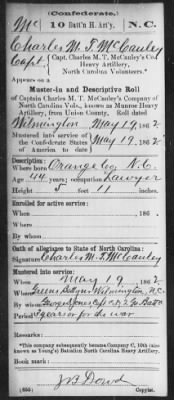 (Confederate.)
Mc 10 Batt'n H. Art'y. N.C.
Charles M. T. McCauley
Capt., Capt. Charles M. T. McCauley's Co.,
Heavy Artillery,
North Carolina Volunteers.*
Appears on a
Muster-in and Descriptive Roll
of Captain Charles M. T. McCauley's Company of
North Carolina Vols., known as Monroe Heavy
Artillery, from Union County. Roll dated
Wilmington May 19, 1862.
Mustered into service of
the Confederate States May 19, 1862.
of America to date
Description:
Where born Orange Co, N.C.
Age 44 years; occupation Lawyer
Height 5 feet 11 inches.
Enrolled for active service:
When , 186 .
Where
By whom
Oath of allegiance to State of North Carolina:
Signature Charles M. T. McCauley
Mustered into service:
When May 19, 1862
Where Wilmington, N.C.
By whom
Period 3 years or for the war
Remarks:
*This company subsequently became Company C, 10th (also
known as Young's) Battalion North Carolina Heavy Artillery.
Book mark:
J B Dowd
(655) Copyist.